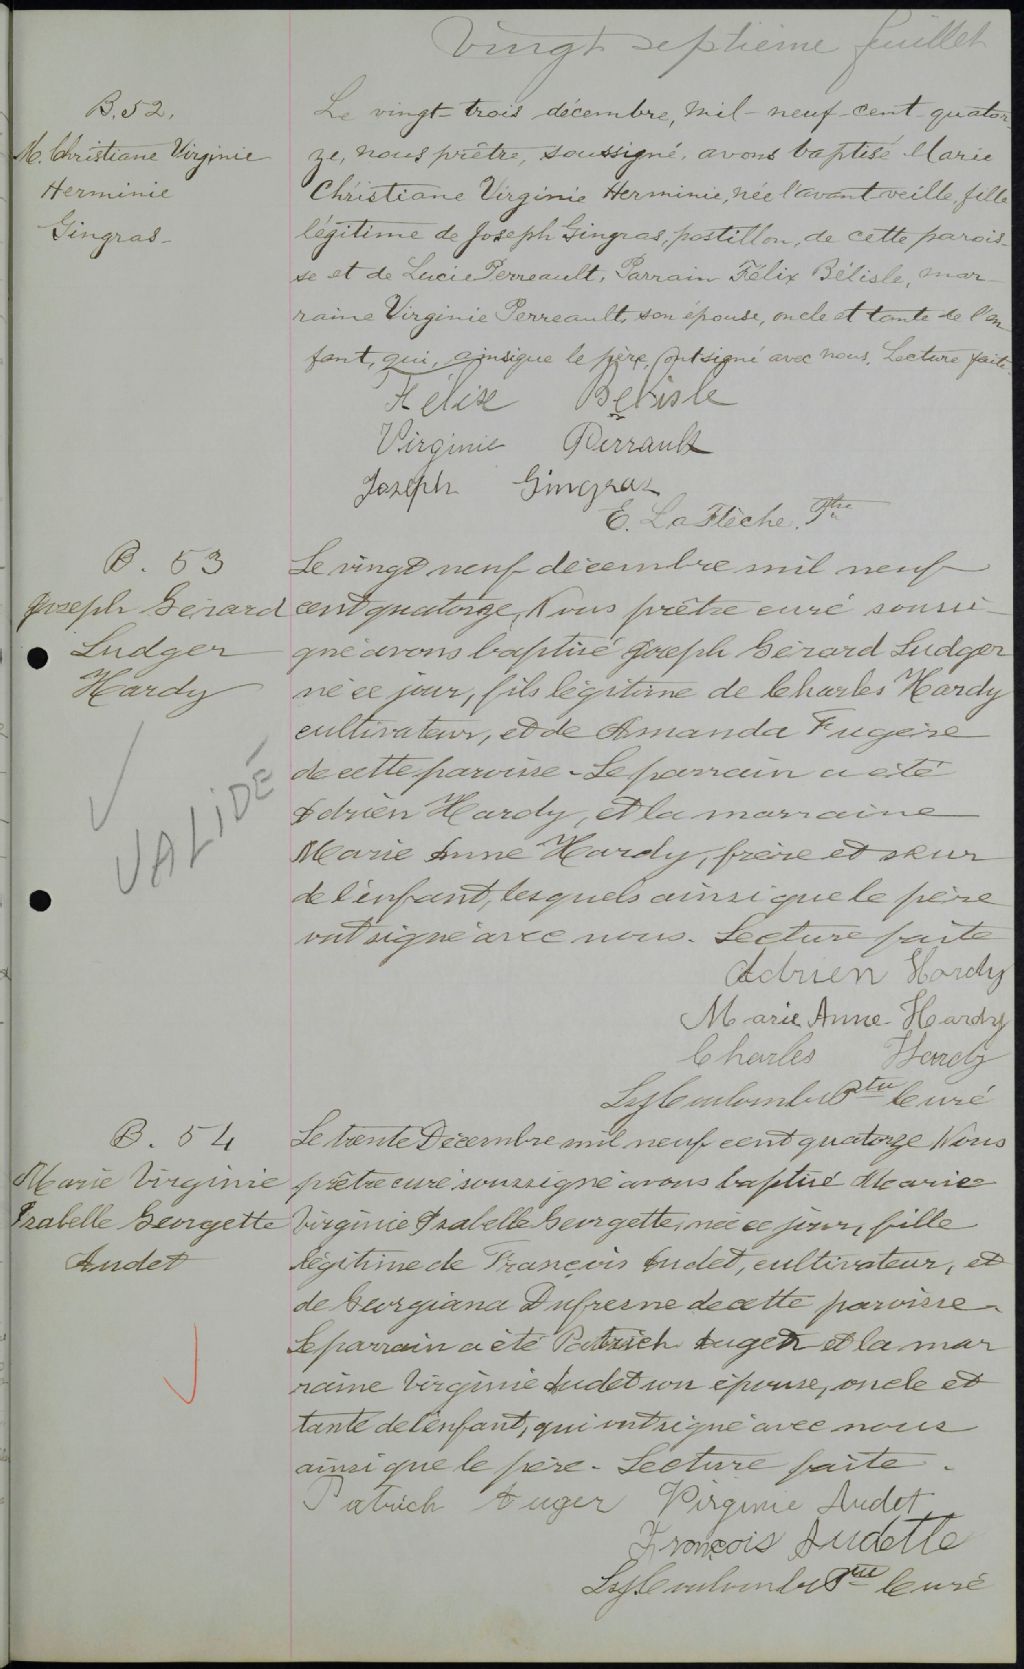 Vingt septième feuillet
B. 52.
M. Christiane Virginie
Herminie
Gingras-
Le vingt-trois décembre, mil-neuf-cent-quator-
ze, nous prêtre, soussigné, avons baptisé Marie
Christiane Virginie Herminie, née l'avant-veille, fille
légitime de Joseph Gingras, postillon, de cette parois-
se et de Lucie Perreault, Parrain Félix Bélisle, mar-
raine Virginie Perreault, son épouse, oncle et tante de l'en
fant, qui, ainsi que le père, ont signé avec nous. Lecture faite.
Félix Belisle
Virginie Perrault
Joseph Gingras
E. LaFlèche. Ptre
B. 53
Joseph Gérard
Ludger
Hardy
VALIDÉ
Le vingt neuf décembre mil neuf
cent quatorze, Nous prêtre curé soussi-
gné avons baptisé Joseph Gérard Ludger
né ce jour, fils légitime de Charles Hardy
cultivateur, et de Amanda Fugère
de cette paroisse - Le parrain a été
Adrien Hardy, et la marraine
Marie Anne Hardy, frère et sœur
de l'enfant, lesquels ainsi que le père
ont signé avec nous. Lecture faite
Adrien Hardy
Marie Anne Hardy
Charles Hardy
Ptre Curé
B. 54
Marie Virginie
Isabelle Georgette
Audet
Le trente Décembre mil neuf cent quatorze Nous
prêtre curé soussigné avons baptisé Marie
Virginie Isabelle Georgette, née ce jour, fille
légitime de François Audet, cultivateur, et
de Georgiana Dufresne de cette paroisse -
Le parrain a été Patrick Auger et la mar
raine Virginie Audet son épouse, oncle et
tante de l'enfant, qui ont signé avec nous
ainsi que le père - Lecture faite -
Patrich Auger Virginie Audet
François Audette
Ptre Curé